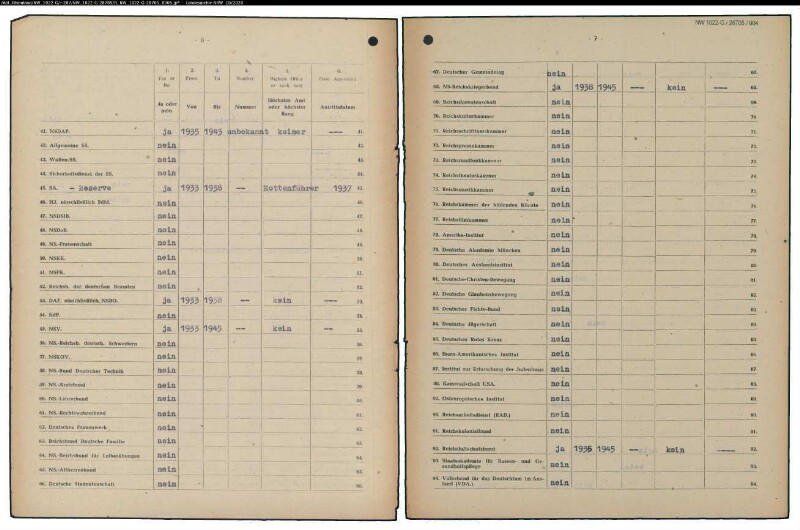 NW 1022-G / 28705 / 004
- 6 -
1. 2. 3. 4. 5. 6.
Yes or No From To Number Highest Office or rank held Date Appointed
Ja oder nein Von Bis Nummer Höchstes Amt oder höchster Rang Antrittsdatum
41. NSDAP. ja 1935 1945 unbekannt keiner --- 41.
42. Allgemeine SS. nein 42.
43. Waffen-SS. nein 43.
44. Sicherheitsdienst der SS. nein 44.
45. SA. - Reserve ja 1933 1938 -- Rottenführer 1937 45.
46. HJ. einschließlich BdM. nein 46.
47. NSDStB. nein 47.
48. NSDoB. nein 48.
49. NS-Frauenschaft nein 49.
50. NSKK. nein 50.
51. NSFK. nein 51.
52. Reichsb. der deutschen Beamten nein 52.
53. DAF. einschließlich NSBO. ja 1933 1938 -- kein --- 53.
54. KdF. nein 54.
55. NSV. ja 1933 1945 -- kein -- 55.
56. NS-Reichsb. deutsch. Schwestern nein 56.
57. NSKOV. nein 57.
58. NS-Bund Deutscher Technik nein 58.
59. NS-Ärztebund nein 59.
60. NS-Lehrerbund nein 60.
61. NS-Rechtswahrerbund nein 61.
62. Deutsches Frauenwerk nein 62.
63. Reichsbund Deutsche Familie nein 63.
64. NS-Reichsbund für Leibesübungen nein 64.
65. NS-Altherrenbund nein 65.
66. Deutsche Studentenschaft nein 66.
- 7 -
67. Deutscher Gemeindetag nein 67.
68. NS-Reichskriegerbund ja 1938 1945 --- kein --- 68.
69. Reichsdozentenschaft nein 69.
70. Reichskulturkammer nein 70.
71. Reichsschrifttumskammer nein 71.
72. Reichspressekammer nein 72.
73. Reichsrundfunkkammer nein 73.
74. Reichstheaterkammer nein 74.
75. Reichsmusikkammer nein 75.
76. Reichskammer der bildenden Künste nein 76.
77. Reichsfilmkammer nein 77.
78. Amerika-Institut nein 78.
79. Deutsche Akademie München nein 79.
80. Deutsches Auslandsinstitut nein 80.
81. Deutsche-Christen-Bewegung nein 81.
82. Deutsche Glaubensbewegung nein 82.
83. Deutscher Fichte-Bund nein 83.
84. Deutsche Jägerschaft nein 84.
85. Deutsches Rotes Kreuz nein 85.
86. Ibero-Amerikanisches Institut nein 86.
87. Institut zur Erforschung der Judenfrage nein 87.
88. Kameradschaft USA. nein 88.
89. Osteuropäisches Institut nein 89.
90. Reichsarbeitsdienst (RAD.) nein 90.
91. Reichskolonialbund nein 91.
92. Reichsluftschutzbund ja 1936 1945 --- kein ---- 92.
93. Staatsakademie für Rassen- und Gesundheitspflege nein 93.
94. Volksbund für das Deutschtum im Ausland (VDA.) nein 94.